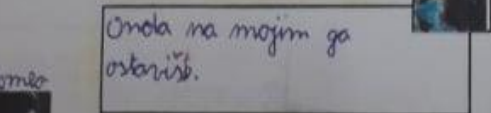 Onda na mojim ga
ostaviš.